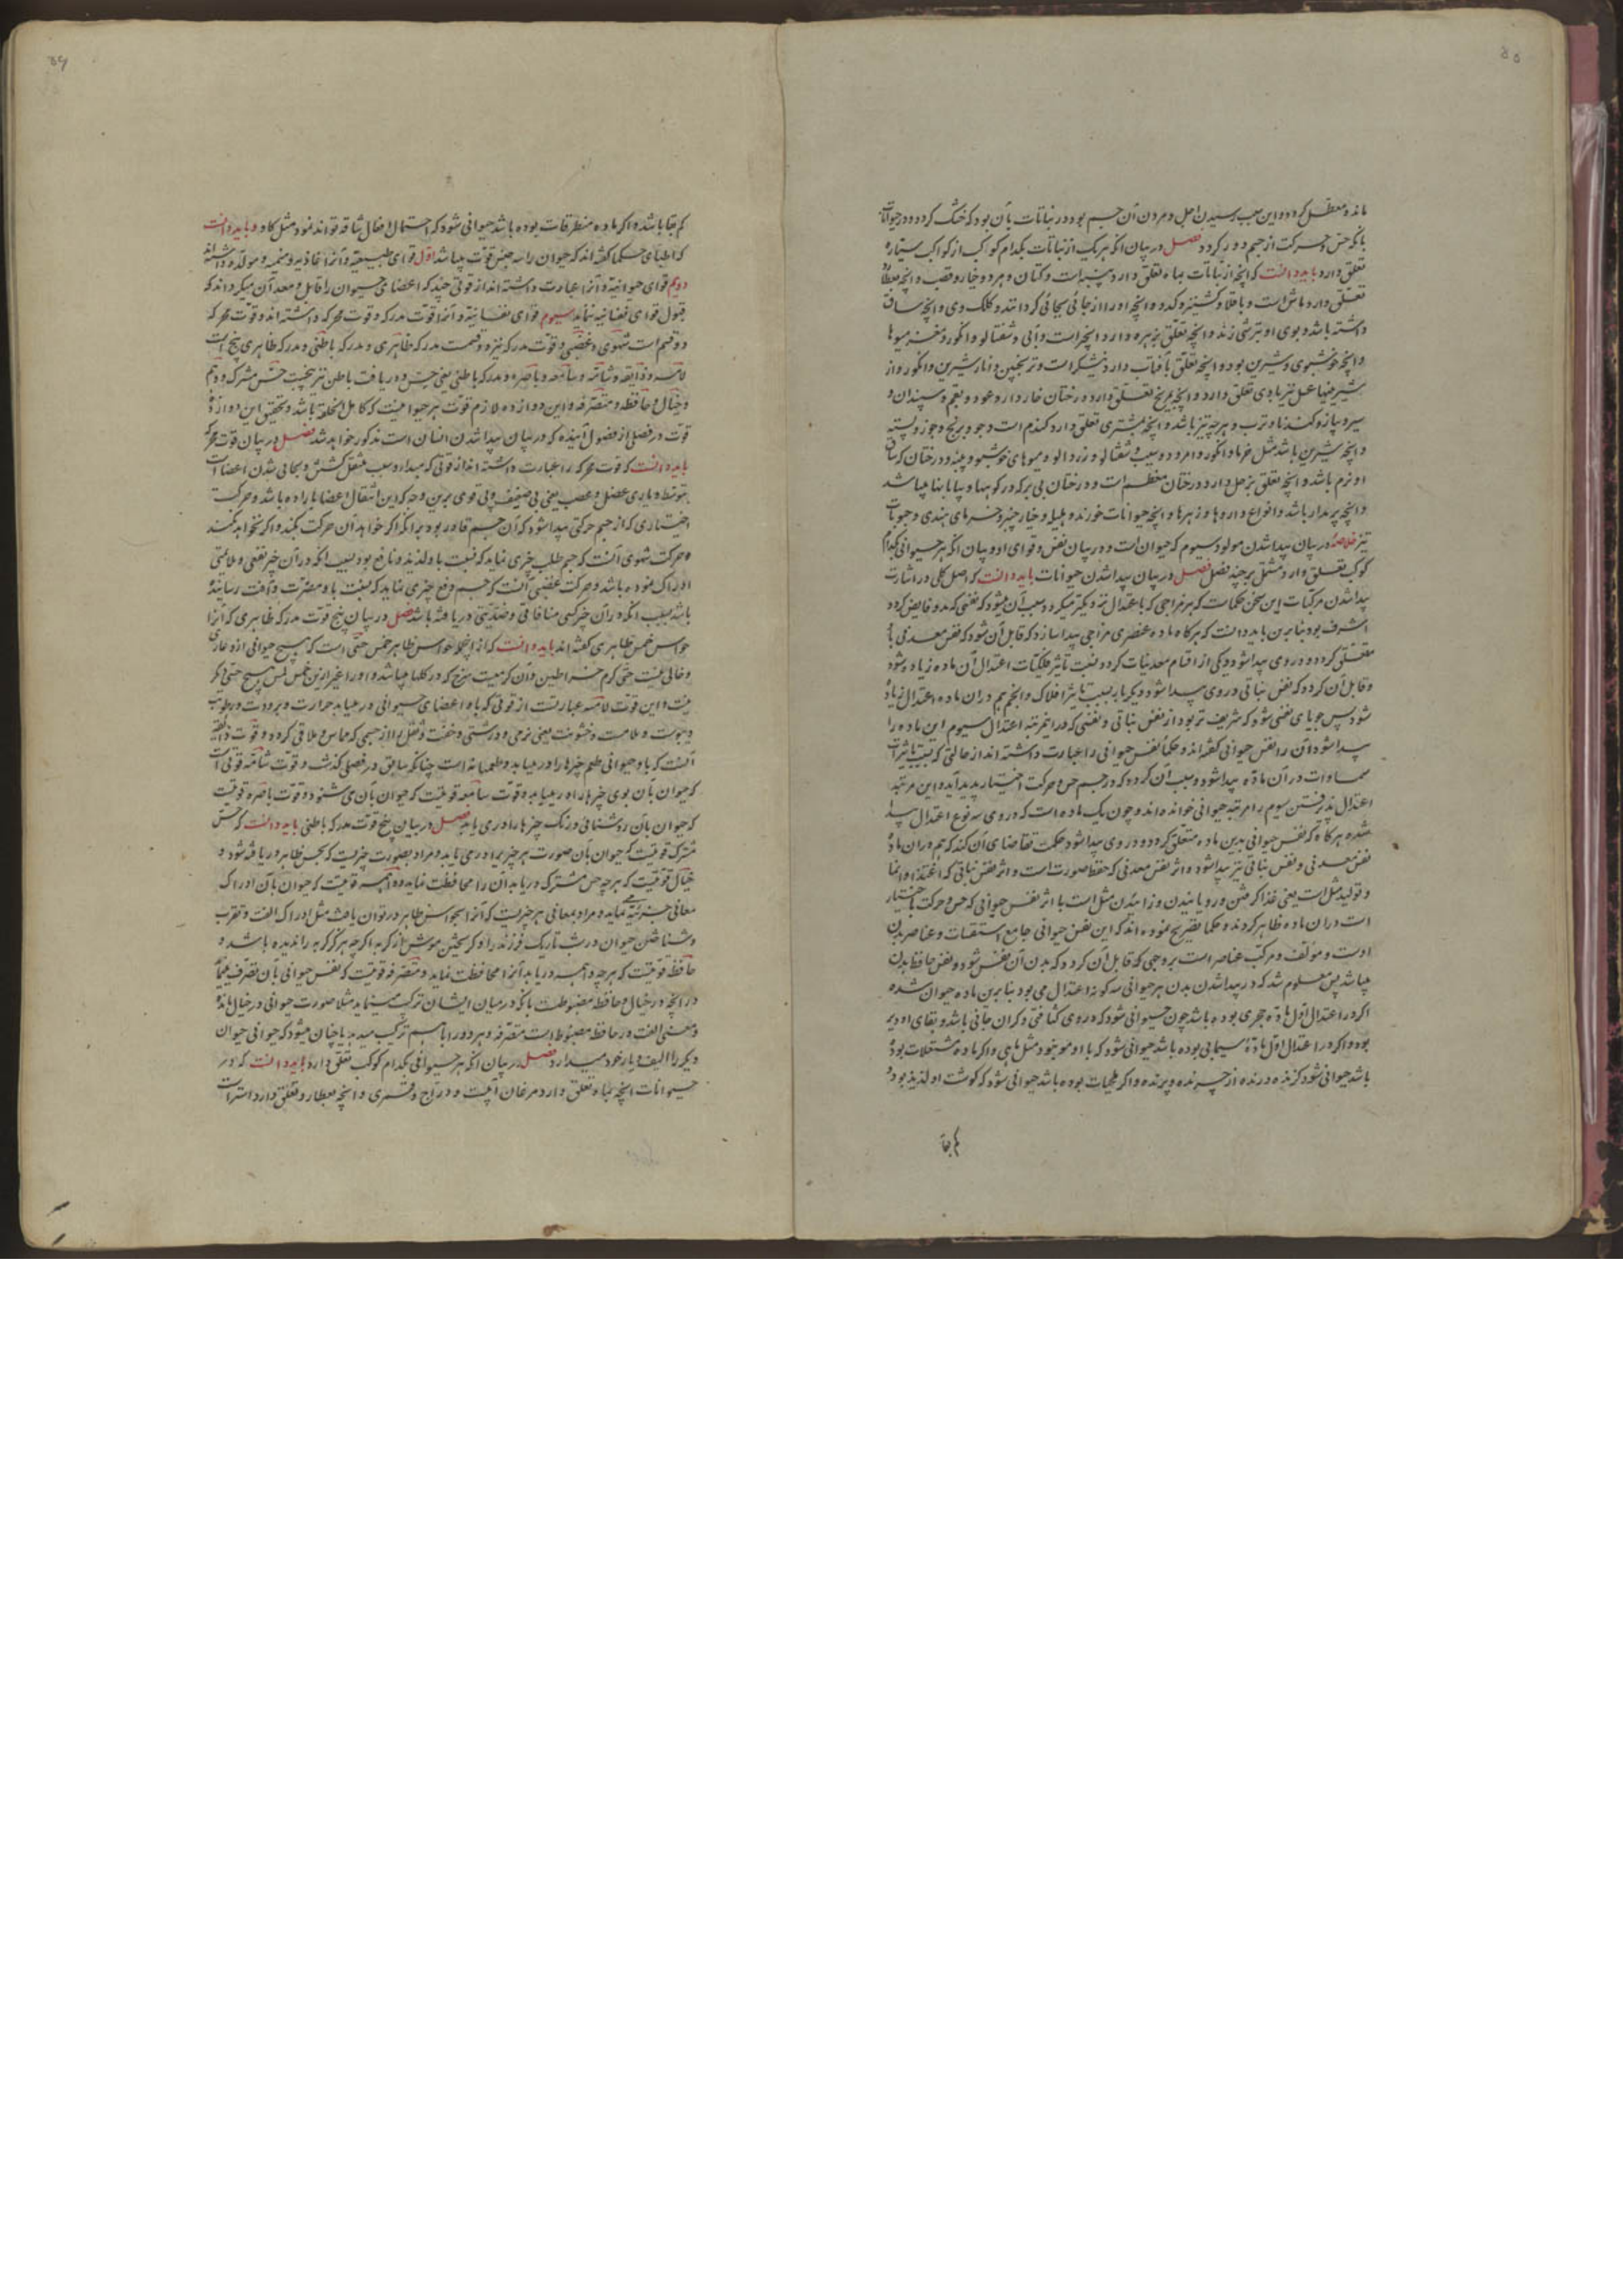 ماند و معطل گردد و این سبب رسیدن اجل و مردن آن جسم بود و در نباتات بآن بود که خشک گردد و در حیوانات
بانکه حس و حرکت از جسم دور گردد فصل در بیان انکه هر یک از نباتات بکدام کوکب از کواکب سیاره
تعلق دارد باید دانست که انچه از نباتات بماه تعلق دارد پنبه است و کتان و خیار و قصب و انچه بعطارد
تعلق دارد ماش است و باقلا و کشنیز و کدو و انچه او را از جائی بجائی گردانند و کلک و نی و انچه ساق
داشته باشد و بوی او بتیزی زند و انچه تعلق بزهره دارد انجیر است و آبی و شفتالو و انگور و میوها
و انچه خوشبوی و شیرین بود و انچه تعلق بآفتاب دارد نیشکر است و ترنجبین و انار شیرین و انگور و از
شیرینیها عسل نیز بادی تعلق دارد و انچه بمریخ تعلق دارد درختان خاردار و عود و بقم و سپندان و
سیر و پیاز و گندنا و ترب و هرچه تیز باشد و انچه بمشتری تعلق دارد گندم است و جو و برنج و جوز و پسته
و انچه شیرین باشد مثل خرما و انگور و امرود و سیب و شفتالو و زردالو و میوهای خوشبو و پنبه و درختان که ساق
او نرم باشد و انچه تعلق بزحل دارد درختان معظم است و درختان بی بر که در کوهها و بیابانها میباشد
و انچه پرمدار باشد و انواع داروها و زهرها و انچه حیوانات خورند و هلیله و خیار چنبر و خرمای هندی و حبوبات
نیز خلاصه در بیان پیدا شدن مولود سیوم که حیوان است و در بیان نفس و قوای او و بیان انکه هر حیوانی بکدام
کوکب تعلق دارد مشتمل بر چند فصل فصل در بیان پیدا شدن حیوانات باید دانست که اصل کلی در اشارت
پیدا شدن مرکبات این سخن حکماست که هر مزاجی که باعتدال نزدیکتر میگردد سبب آن میشود که نفسی که بدو فایض گردد
اشرف بود بنابرین باید دانست که هرگاه ماده عنصری مزاجی پیدا سازد که قابل آن شود که نفس معدنی با
متعلق گردد و در وی پیدا شود و یکی از اقسام معدنیات گردد بسبب تاثیر فلکیات اعتدال آن ماده زیاده شود
و قابل آن گردد که نفس نباتی در وی پیدا شود و دیگر بار بسبب تاثیر افلاک و انجم هم دران ماده اعتدال زیاده
شود پس جویای نفسی شود که شریف تر بود از نفس نباتی و نفسی که در این مرتبه اعتدال سیوم این ماده را
پیدا شود آن را نفس حیوانی گفته اند و حکما نفس حیوانی را عبارت داشته اند از حالتی که بسبب تاثیرات
سماوات در آن ماده پیدا شود و سبب آن گردد که در جسم حس و حرکت اختیار پدید آید و این مرتبه
اعتدال پذیرفتن سیوم را مرتبه حیوانی خوانده اند و چون یک ماده است که در وی سه نوع اعتدال پیدا
شده هرگاه که نفس حیوانی بدین ماده متعلق گردد و در وی پیدا شود حکمت تقاضای آن کند که هم دران ماده
نفس معدنی و نفس نباتی نیز پیدا شود و اثر نفس معدنی که حفظ صورت است و اثر نفس نباتی که اغتذا و انما
و تولید مثل است یعنی غذا کرفتن و رویانیدن و زائیدن مثل است با اثر نفس حیوانی که حس و حرکت باختیار
است دران ماده ظاهر گردند و حکما تصریح نموده اند که این نفس حیوانی جامع استقسات و عناصر بدن
اوست و مؤلف و مرکب عناصر است بر وجهی که قابل آن گردد که بدن آن نفس شود و نفس حافظ بدن
میباشد پس معلوم شد که در پیدا شدن بدن هر حیوانی سه گونه اعتدال می بود بنابرین ماده حیوان شده
اگر در اعتدال اول ماده حجری بوده باشد چون حیوانی شود که در وی کثافتی و گران جانی باشد و بقای او دیر
بود و اگر در اعتدال اول مادۀ سیمابی بوده باشد حیوانی شود که با او موجود مثل ماهی و اگر ماده مشتعلات بوده
باشد حیوانی شود گزنده و درنده از چرنده و پرنده و اگر ملحیات بوده باشد حیوانی شود که گوشت او لذیذ بود و
کم بقا
کم بقا باشد و اگر ماده منطرقات بوده باشد حیوانی شود که احتمال افعال شاقه تواند نمود مثل گاو و باید دانست
که اطبا و حکما گفته اند که حیوان را سه جنس قوت میباشد اول قوای طبیعیه و آنرا غاذیه و منمیه و مولده داشته اند
دویم قوای حیوانیه و آنرا عبارت داشته اند از قوتی چند که اعضای حیوان را قابل و معد آن میگرداند که
قبول قوای نفسانیه نماید سیوم قوای نفسانیه و آنرا قوت مدرکه و قوت محرکه داشته اند و قوت محرکه
دو قسم است شهوی و غضبی و قوت مدرکه نیز دو قسمست مدرکه ظاهری و مدرکه باطنی و مدرکه ظاهری پنج است
لامسه و ذایقه و شامه و سامعه و باصره و مدرکه باطنی یعنی حس و دریافت باطن نیز پنجست حس مشترک و وهم
و خیال و حافظه و متصرفه و این دوازده لازم قوت هر حیوانیست که کامل الخلقة باشد و تحقیق این دوازده
قوت در فصلی از فصول آینده که در بیان پیدا شدن انسان است مذکور خواهد شد فصل در بیان قوت محرکه
باید دانست که قوت محرکه را عبارت داشته اند از قوتی که مبدا و سبب منتقل گشتن و بجایی شدن اعضا است
بتوسط و یاری عضل و عصب یعنی پی ضعیف و پی قوی برین وجه که این انتقال اعضا باراده باشد و حرکت
اختیاری که از جسم حرکتی پیدا شود که آن جسم قادر بود برانکه اگر خواهد آن حرکت بکند و اگر نخواهد نکند
و حرکت شهوی آنست که جسم طلب چیزی نماید که نسبت باو لذیذ و نافع بود بسبب انکه در آن چیز نفعی و ملایمتی
ادراک نموده باشد و حرکت غضبی آنست که جسم دفع چیزی نماید که نسبت باو مضرت و آفت رساننده
باشد بسبب انکه در آن چیز کیفی منافاتی و ضدیتی دریافته باشد فصل در بیان پنج قوت مدرکه ظاهری که آنرا
حواس خمس ظاهری گفته اند باید دانست که از انجمله حواس ظاهر خمس حسی است که هیچ حیوانی ازو عاری
و خالی نیست حتی کرم خراطین و آن کرمیست سرخ که در گلها میباشد و او را غیر ازین حس لمس هیچ حسی دیگر
نیست و این قوت لامسه عبارتست از قوتی که باو اعضای حیوانی در مییابد حرارت و برودت و رطوبت
و یبوست و ملاست و خشونت یعنی نرمی و درشتی و خفت و ثقل را از جسمی که مماس و ملاقی گردد و قوت ذایقه
آنست که باو حیوانی طعم چیزها را در مییابد و طعمها نه است چنانکه سابق در فصلی گذشت و قوت شامه قوتی است
که حیوان بآن بوی چیزها را در مییابد و قوت سامعه قوتیست که حیوان بآن می شنود و قوت باصره قوتیست
که حیوان بآن روشنائی و رنگ چیزها را در می یابد فصل در بیان پنج قوت مدرکه باطنی باید دانست که حس
مشترک قوتیست که حیوان بآن صورت هر چیز را در می یابد و مراد بصورت چیزیست که بحس ظاهر دریافته شود و
خیال قوتیست که هرچه حس مشترک دریابد آن را محافظت نماید و واهمه قوتیست که حیوان بآن ادراک
معانی جزئیه می نماید و مراد بمعانی هر چیزیست که آنرا بحواس ظاهر در نتوان یافت مثل ادراک الفت و تقرب
و شناختن حیوان در شب تاریک فرزند را و گریختن موش از گربه اگرچه هرگز گربه را ندیده باشد و
حافظه قوتیست که هرچه واهمه دریابد آنرا محافظت نماید و متصرفه قوتیست که نفس حیوانی بآن تصرف مینماید
در انچه در خیال و حافظه مضبوطست بانکه در میان ایشان ترکیب مینماید مثلا صورت حیوانی در خیال مانده
و معنی الفت در حافظه مضبوط است متصرفه هر دو را باهم ترکیب میدهد یا چنان میشود که حیوانی حیوان
دیگر را الیف و یار خود میدارد فصل در بیان انکه هر حیوانی بکدام کوکب تعلق دارد باید دانست که در
حیوانات انچه بماه تعلق دارد مرغان آبیست و دراج و قمری و انچه بعطارد تعلق دارد استر است